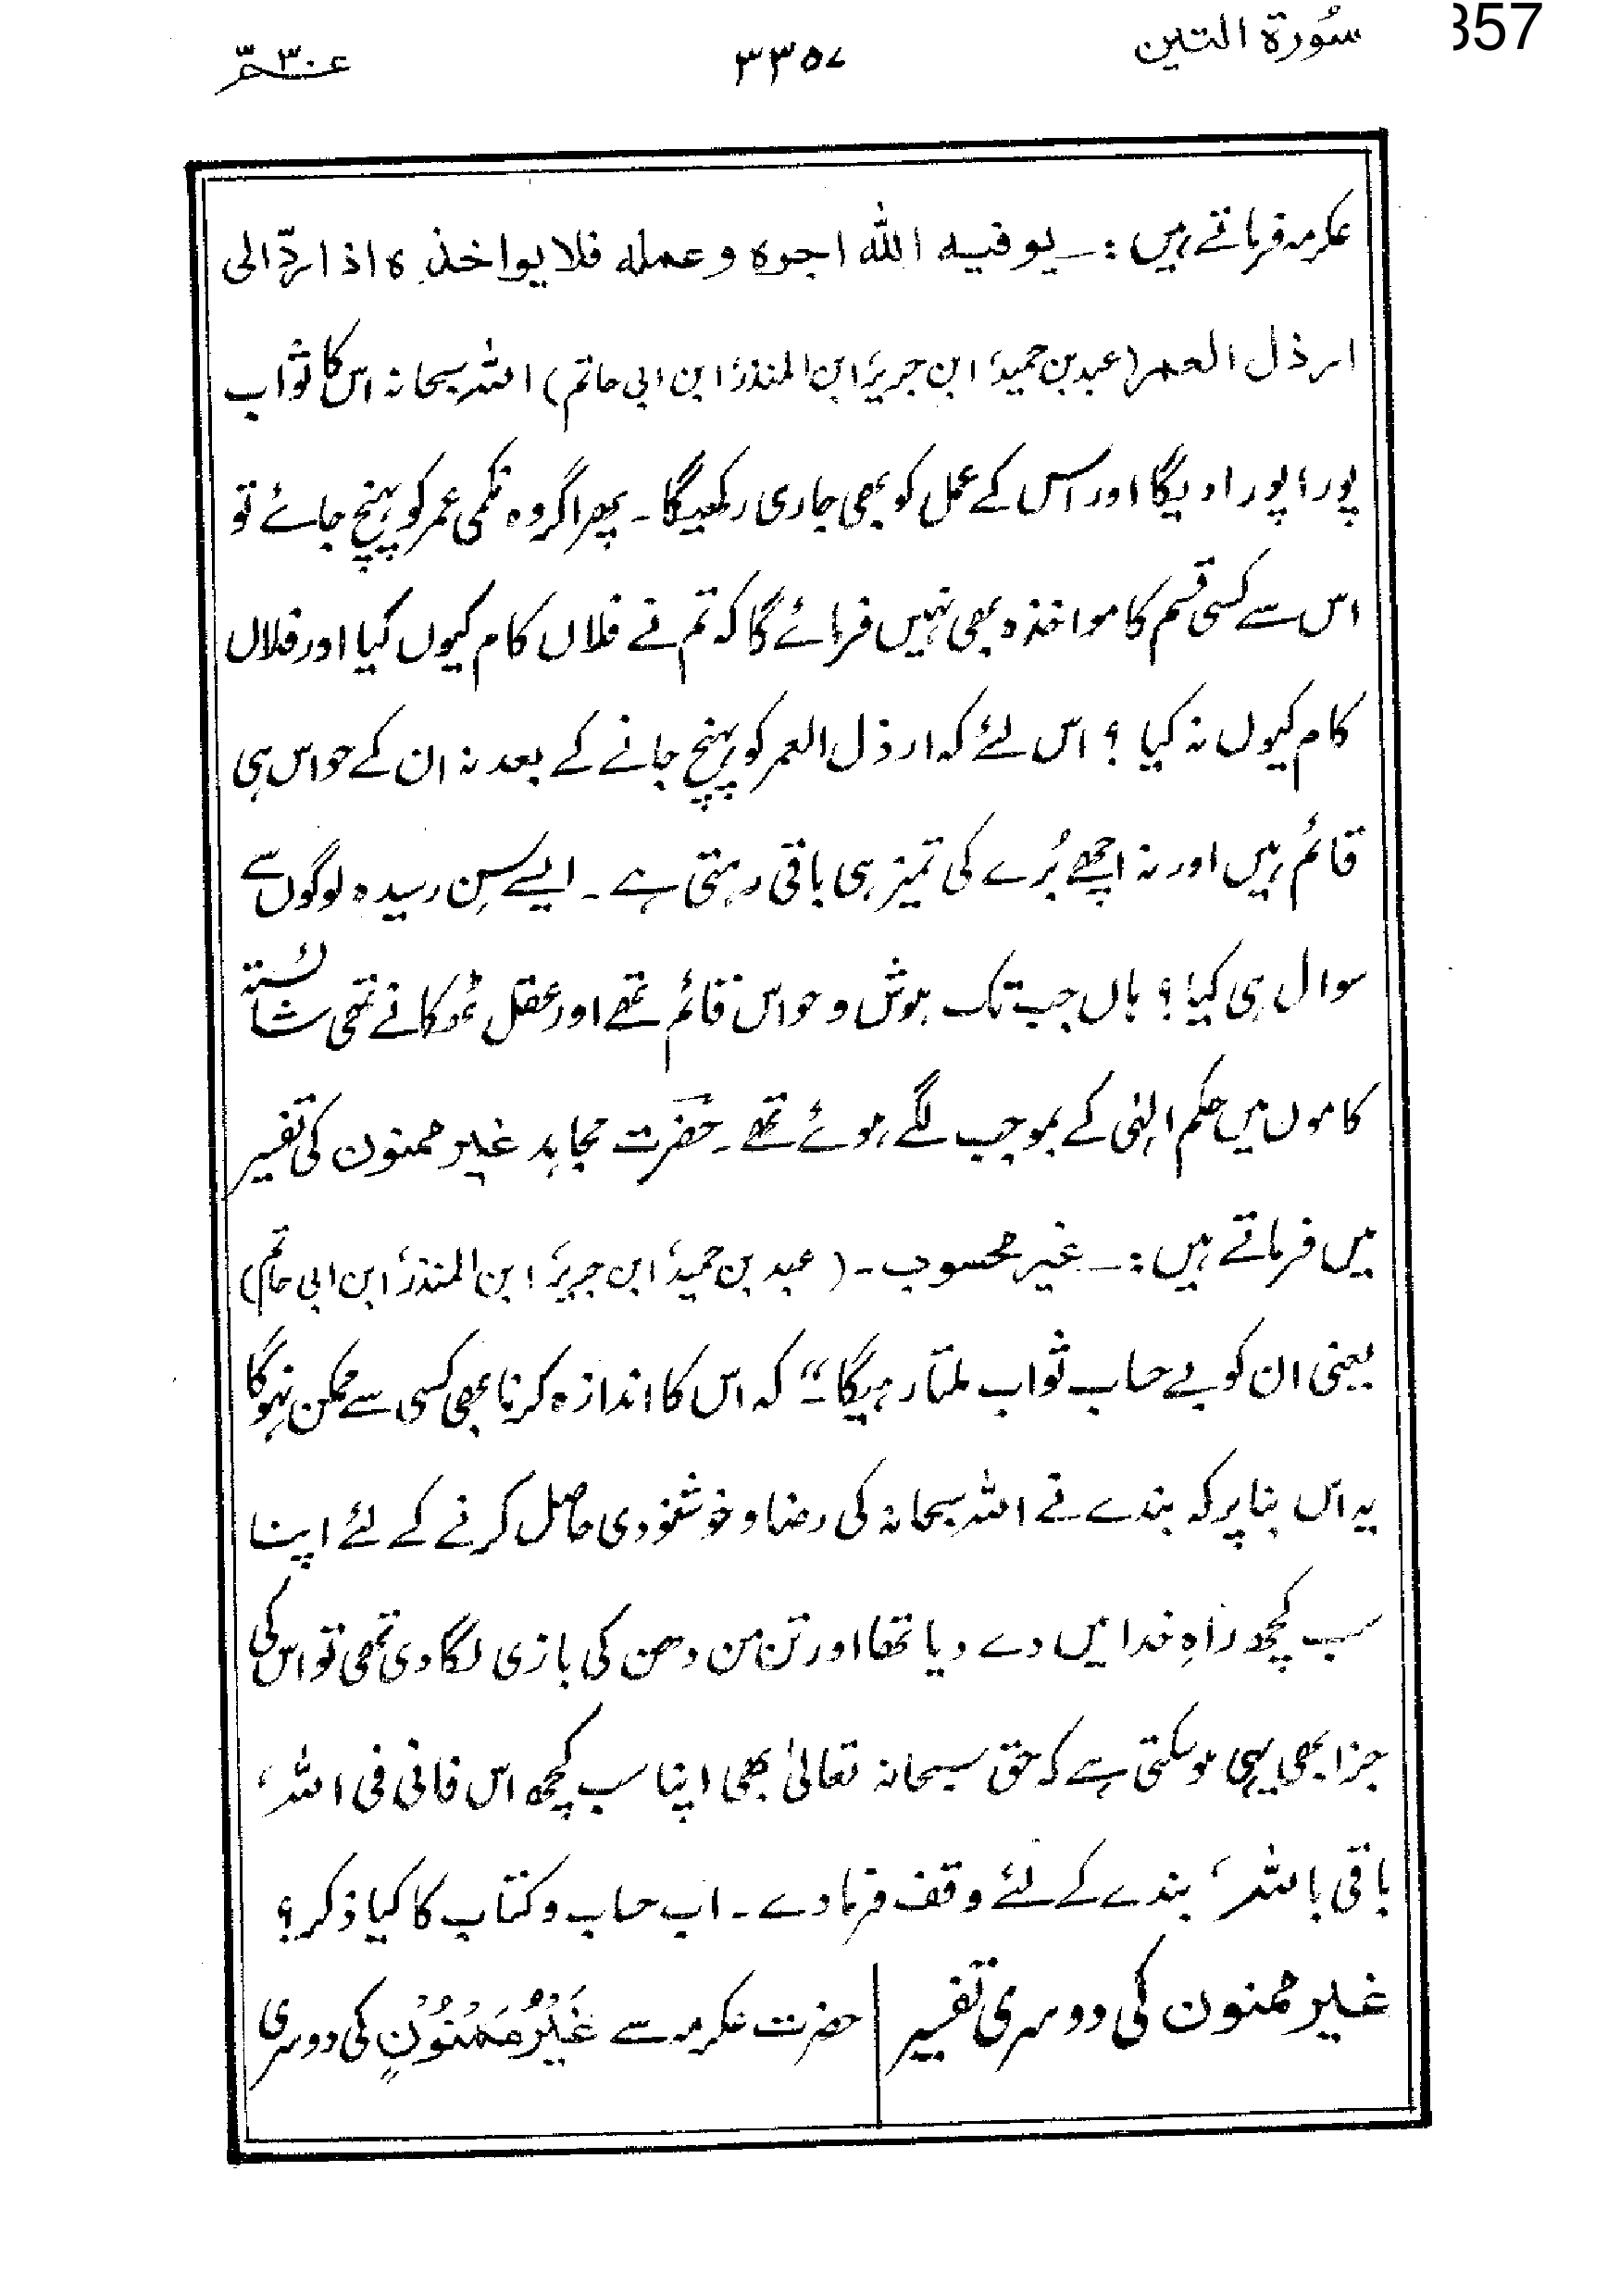 357
سُورة التين ۳۳۵۷ عۃ۳۰
عکرمہ فرماتے ہیں :۔ یوفیه الله اجره و عمله فلا یواخذہ اذا ردّ الی
ارذل العمر (عبد بن حمید، ابن جریر، ابن المنذر، ابن ابی حاتم) اللہ سبحانہ اس کا ثواب
پورا پورا دیگا اور اس کے عمل کو بھی جاری رکھیگا۔ پھر اگر وہ نکمی عمر کو پہنچ جائے تو
اس سے کسی قسم کا مواخذہ بھی نہیں فرمائے گا کہ تم نے فلاں کام کیوں کیا اور فلاں
کام کیوں نہ کیا ؟ اس لئے کہ ارذل العمر کو پہنچ جانے کے بعد نہ ان کے حواس ہی
قائم ہیں اور نہ اچھے بُرے کی تمیز ہی باقی رہتی ہے ۔ ایسے سِن رسیدہ لوگوں سے
سوال ہی کیا ؟ ہاں جب تک ہوش و حواس قائم تھے اور عقل ٹھکانے تھی شائستہ
کاموں میں حکم الٰہی کے بموجب لگے ہوئے تھے ۔ حضرت مجاہد غیر ممنون کی تفسیر
میں فرماتے ہیں :۔ غیر محسوب ۔ (عبد بن حمید، ابن جریر، ابن المنذر، ابن ابی حاتم)
یعنی ان کو بے حساب ثواب ملتا رہیگا ۔“ کہ اس کا اندازہ کرنا بھی کسی سے ممکن نہوگا
یہ اس بنا پر کہ بندے نے اللہ سبحانہ کی رضا و خوشنودی حاصل کرنے کے لئے اپنا
سب کچھ راہِ خدا میں دے دیا تھا اور تن من دھن کی بازی لگا دی تھی تو اس کی
جزا بھی یہی ہو سکتی ہے کہ حق سبحانہ تعالیٰ بھی اپنا سب کچھ اس فانی فی اللہ،
باقی باللہ، بندے کے لئے وقف فرمادے ۔ اب حساب و کتاب کا کیا ذکر ؟
غیر ممنون کی دوسری تفسیر | حضرت عکرمہ سے غَیْرُ مَمْنُوْنٍ کی دوسری